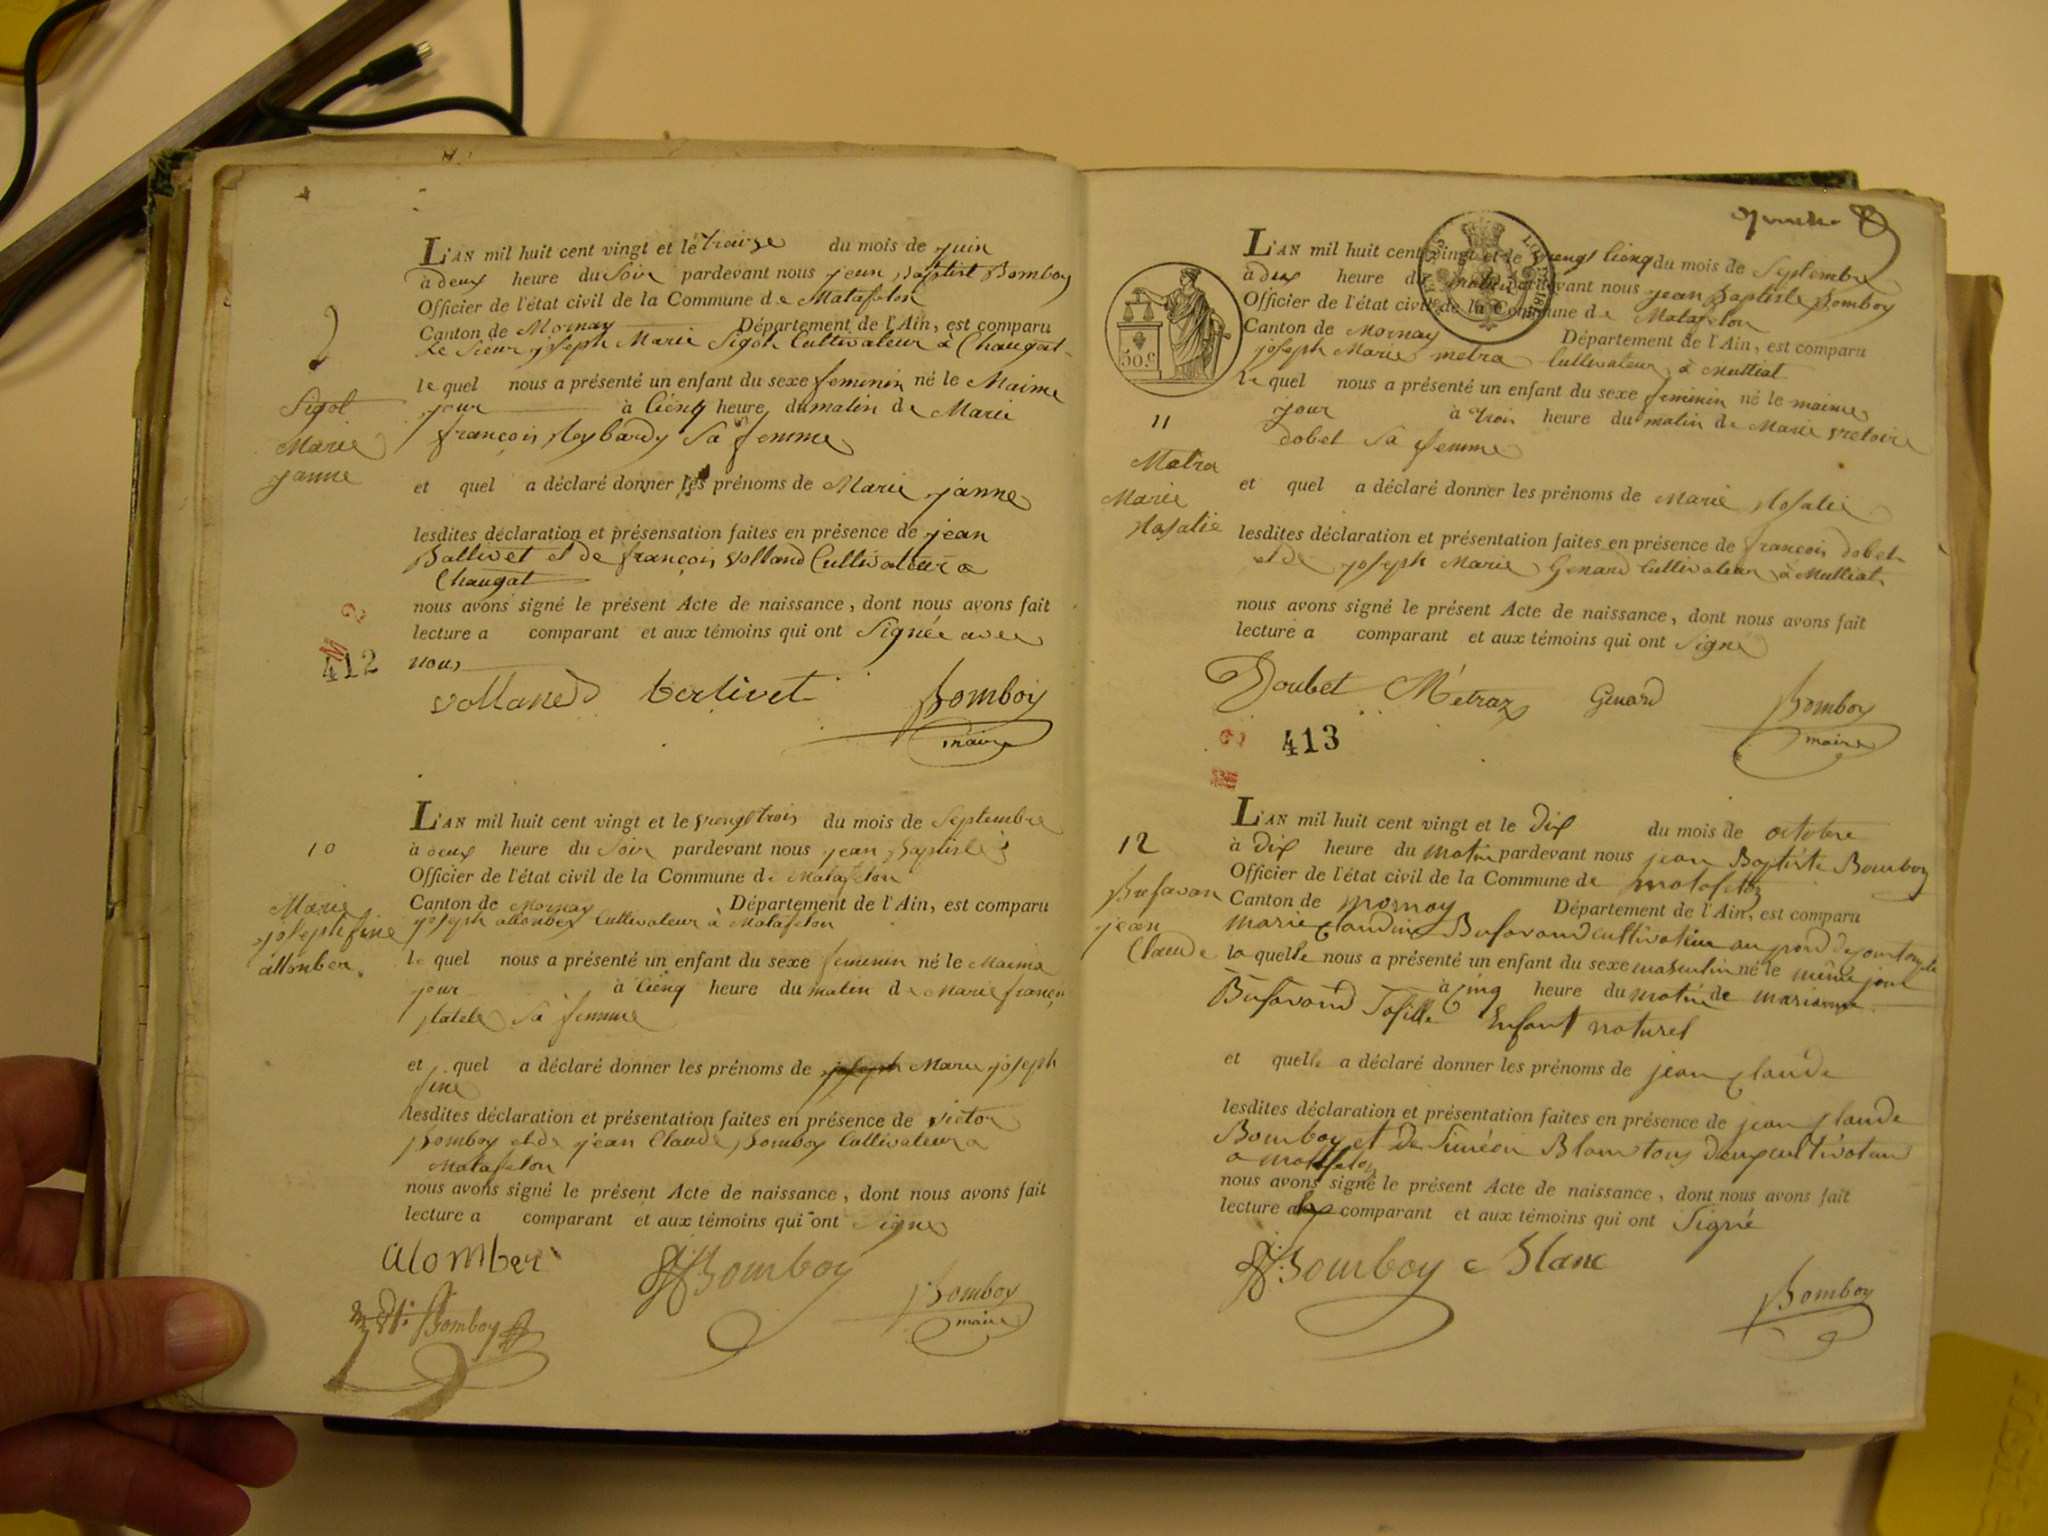 2
Sigol
Marie
janne
L'AN mil huit cent vingt et le traize du mois de juin
à deux heure du Soir pardevant nous jean Baptist Bomboy
Officier de l'état civil de la Commune de Matafelon
Canton de Mornay Département de l'Ain, est comparu
Le Sieur joseph Marie Sigol Cultivateur a Chaugat
le quel nous a présenté un enfant du sexe feminin né le Maime
jour à Cienq heure du matin de Marie
françois Roybardy Sa femme
et quel a déclaré donner les prénoms de Marie janne
lesdites déclaration et présensation faites en présence de jean
Ballivet et de françois Volland Cultivateur a
Chaugat
nous avons signé le présent Acte de naissance, dont nous avons fait
lecture a comparant et aux témoins qui ont Signée avec
nous
412
volland bertivet Bomboy
maire
10
Marie
josephfine
allonber
L'AN mil huit cent vingt et le vrengt trois du mois de Septembre
à deux heure du Soir pardevant nous jean Baptiste
Officier de l'état civil de la Commune de Matafelon
Canton de Mornay Département de l'Ain, est comparu
joseph allonber Cultivateur à Matafelon
le quel nous a présenté un enfant du sexe feminin né le Maime
jour à Cienq heure du maten de Marie francois
Sa femme
et quel a déclaré donner les prénoms de joseph Marie joseph
fine
lesdites déclaration et présentation faites en présence de victor
Bomboy et de jean Claude Bomboy Cultivateur a
Matafelon
nous avons signé le présent Acte de naissance, dont nous avons fait
lecture a comparant et aux témoins qui ont Signe
alomber Bomboy
Bomboy
Bomboy
maire
50 c.
11
Metra
Marie
Rosalie
L'AN mil huit cent vingt et le vrengt Cienq du mois de Septembre
à deux heure du matin pardevant nous jean Baptiste Bomboy
Officier de l'état civil de la Commune de Matafelon
Canton de Mornay Département de l'Ain, est comparu
joseph Marie metra Cultivateur à Mulliat
le quel nous a présenté un enfant du sexe feminin né le maime
jour à trois heure du matin de Marie vretoire
dobet Sa femme
et quel a déclaré donner les prénoms de Marie Rosalie
lesdites déclaration et présentation faites en présence de francois dobet
et de joseph Marie Genard Cultivateur à Mulliat
nous avons signé le présent Acte de naissance, dont nous avons fait
lecture a comparant et aux témoins qui ont Signé
Doubet Métraz Genard Bomboy
maire
413
12
Bufavan
jean
Claude
L'AN mil huit cent vingt et le Dix du mois de octobre
à Dix heure du matin pardevant nous jean Baptiste Bomboy
Officier de l'état civil de la Commune de matafelon
Canton de mornay Département de l'Ain, est comparu
marie claudine Bufavand cultivateur au
la quelle nous a présenté un enfant du sexe masculin né le même jour
à Cinq heure du matin de marianne
Bufavand Safille Enfant naturel
et quelle a déclaré donner les prénoms de jean claude
lesdites déclaration et présentation faites en présence de jean claude
Bomboy et de Siméon Blanc tous deux cultivateur
a matafelon
nous avons signé le présent Acte de naissance, dont nous avons fait
lecture a comparant et aux témoins qui ont Signé
Bomboy Blanc
Bomboy